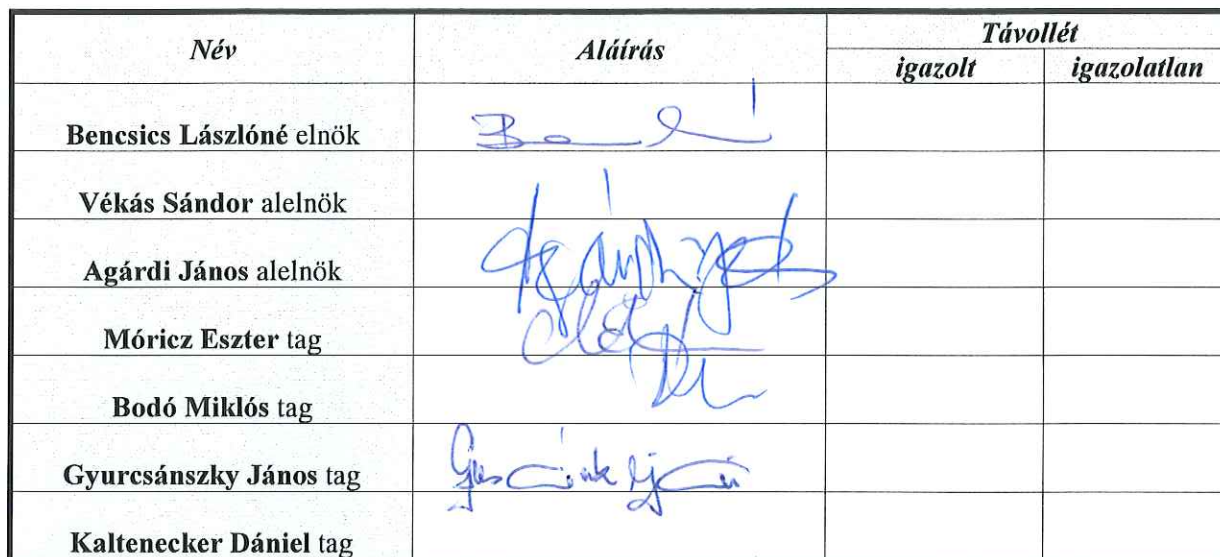 Név Aláírás Távollét
igazolt igazolatlan
Bencsics Lászlóné elnök
Vékás Sándor alelnök
Agárdi János alelnök
Móricz Eszter tag
Bodó Miklós tag
Gyurcsánszky János tag
Kaltenecker Dániel tag